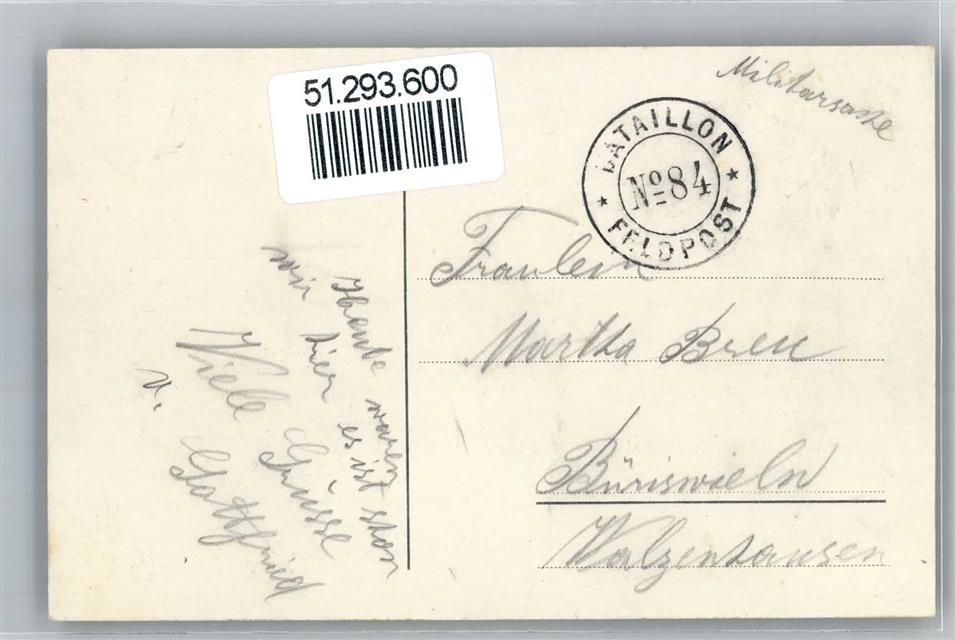 51.293.600
Militärsache
BATAILLON
No 84
FELDPOST
Fräulein
Martha
Walzenhausen
Heute waren
wir hier es ist schon
Viele Grüsse
v. Gottfried